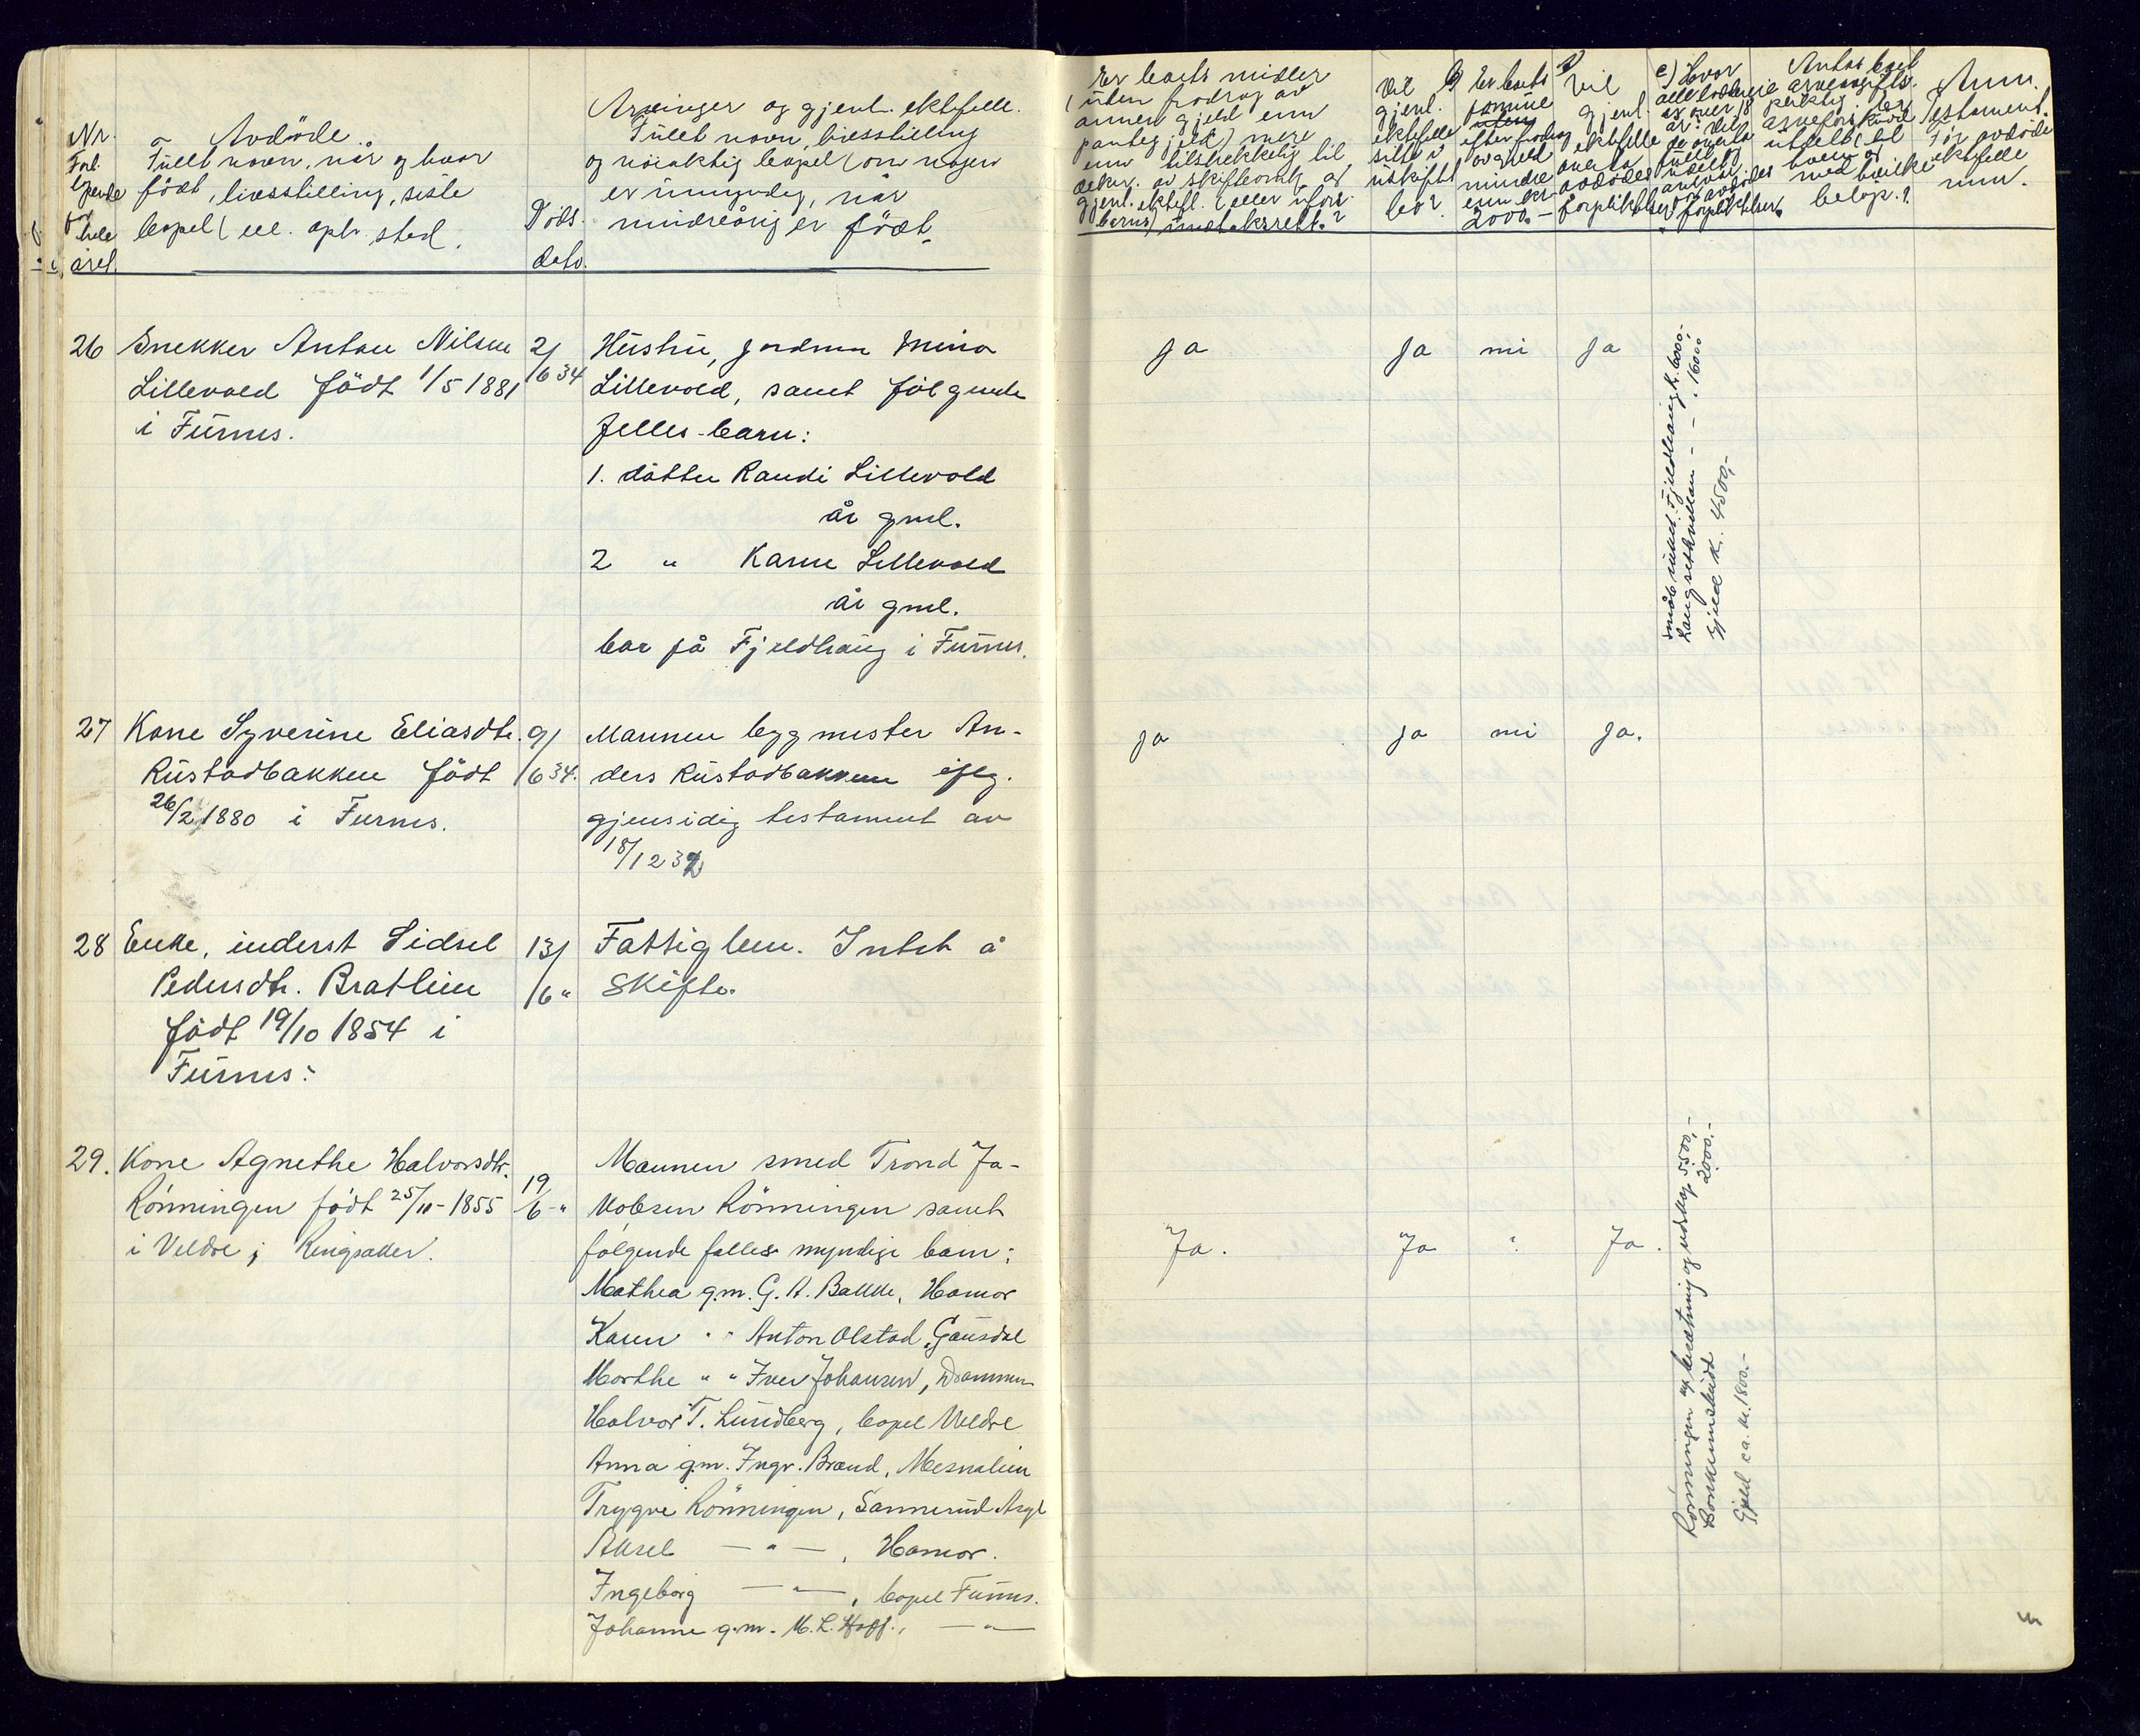 Nr. Forløpende for hele året.
Avdöde.
Fullt navn, når og hvor
født, livsstilling, siste
bopel (ell. oph. sted.
Döds-
dato.
Arvinger og gjenl. ektefelle.
Fullt navn, livsstilling
og nöiaktig bopel (om nogen
er umyndig, når
mindreårig er födt.
Er boets midler
(uten fradrag av
annen gjeld enn
pantegjeld) mere
enn tilstrekkelig til
dekn. av skifteomk. og
gjenl. ektef. (eller ufors.
barns) inntaksrett?
Vil
gjenl.
ektefelle
sitte i
uskiftet
bo?
Er boets
somme
efter fradrag
av gjeld
mindre
enn kr
2000.-
Vil
gjenl.
ektefelle
overta
avdödes
forpliktelser
c) Hvor
alle loddeiere
er over 18
år: Vil
de overta
fullt og
udelt
ansvar
for avdödes
forpliktelser
Antas boet
arveavgifts-
pliktig
Er
arveforskudd
utdelt til
hvem og
med hvilke
belöp.?
Anm.
Testament.
Før avdöde
ektefelle
navn.
26 Snekker Anton Nilsen 2/6 34 Hustru, Jordmor Mina Ja Ja nei Ja
Lillevold födt 1/5 1881 Lillevold, samt fölgende
i Furnes. Felles-barn:
1. datter Randi Lillevold
år gml.
2 " Karen Lillevold
år gml.
bor på Fjeldhaug i Furnes.
Fjeldhaug k. 6000,-
- - 1600
Gjeld k. 4500,-
27 Kone Syverine Eliasdtr. 9/6 34. Mannen byggmester An- Ja Ja nei Ja.
Rustadbakken födt ders Rustadbakken iflg.
26/2 1880 i Furnes. gjensidig testament av
18/12 32
28 Enke, inderst Sidsel 13/6 " Fattiglem. Intet å
Pedersdtr. Bratlien Skifte.
födt 19/10 1854 i
Furnes.
29. Kone Agnethe Halvorsdtr. 19/6 - " Mannen smed Trond Ja-
Rönningen födt 25/11-1855 kobsen Rönningen samt
i Veldre i Ringsaker. følgende felles myndige barn: Ja. Ja Ja.
Mathea g.m. G. A. Bakke, Hamar
Karen " " Anton Olstad, Gausdal
Marthe " " Iver Johansen, Drammen
Halvor T. Lundberg, bopel Veldre
Anna g.m. Ingv. Brænd, Mesnalien
Trygve Rönningen, Sannerud Asyl
Aksel — " — , Hamar.
Ingeborg — " — , bopel Furnes.
Johanne g.m. M. L. Hoff., — " —
Rönningen af besætning og redskap 5500,-
2000.-
Gjeld ca. kr. 1800.-